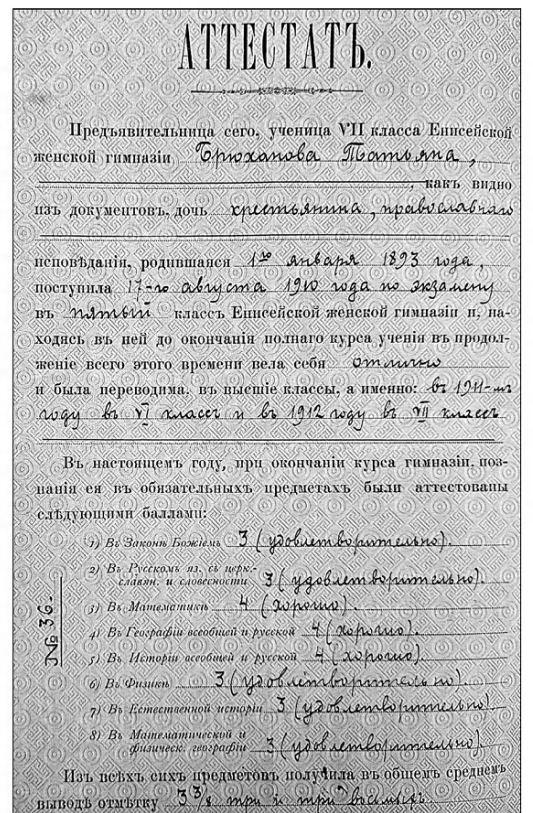 АТТЕСТАТЪ.
Предъявительница сего, ученица VII класса Енисейской
женской гимназіи Брюханова Татьяна,
, какъ видно
изъ документовъ, дочь крестьянина, православнаго
исповѣданія, родившаяся 1го января 1893 года,
поступила 17-го августа 1910 года по экзамену
въ пятый классъ Енисейской женской гимназіи и, на-
ходясь въ ней до окончанія полнаго курса ученія въ продол-
женіе всего этого времени вела себя отлично
и была переводима, въ высшіе классы, а именно: въ 1911-мъ
году въ VI классъ и въ 1912 году въ VII классъ
Въ настоящемъ году, при окончаніи курса гимназіи, поз-
нанія ея въ обязательныхъ предметахъ были аттестованы
слѣдующими баллами:
1) Въ Законѣ Божіемъ 3 (удовлетворительно).
2) Въ Русскомъ яз. съ церк.-
славян. и словесности 3 (удовлетворительно).
3) Въ Математикѣ 4 (хорошо).
4) Въ Географіи всеобщей и русской 4 (хорошо).
5) Въ Исторіи всеобщей и русской 4 (хорошо).
6) Въ Физикѣ 3 (удовлетворительно).
7) Въ Естественной исторіи 3 (удовлетворительно).
8) Въ Математической и
физическ. географіи 3 (удовлетворительно).
№ 36.
Изъ всѣхъ сихъ предметовъ получила въ общемъ среднемъ
выводѣ отмѣтку 3 3/8 три и три восьмыхъ.